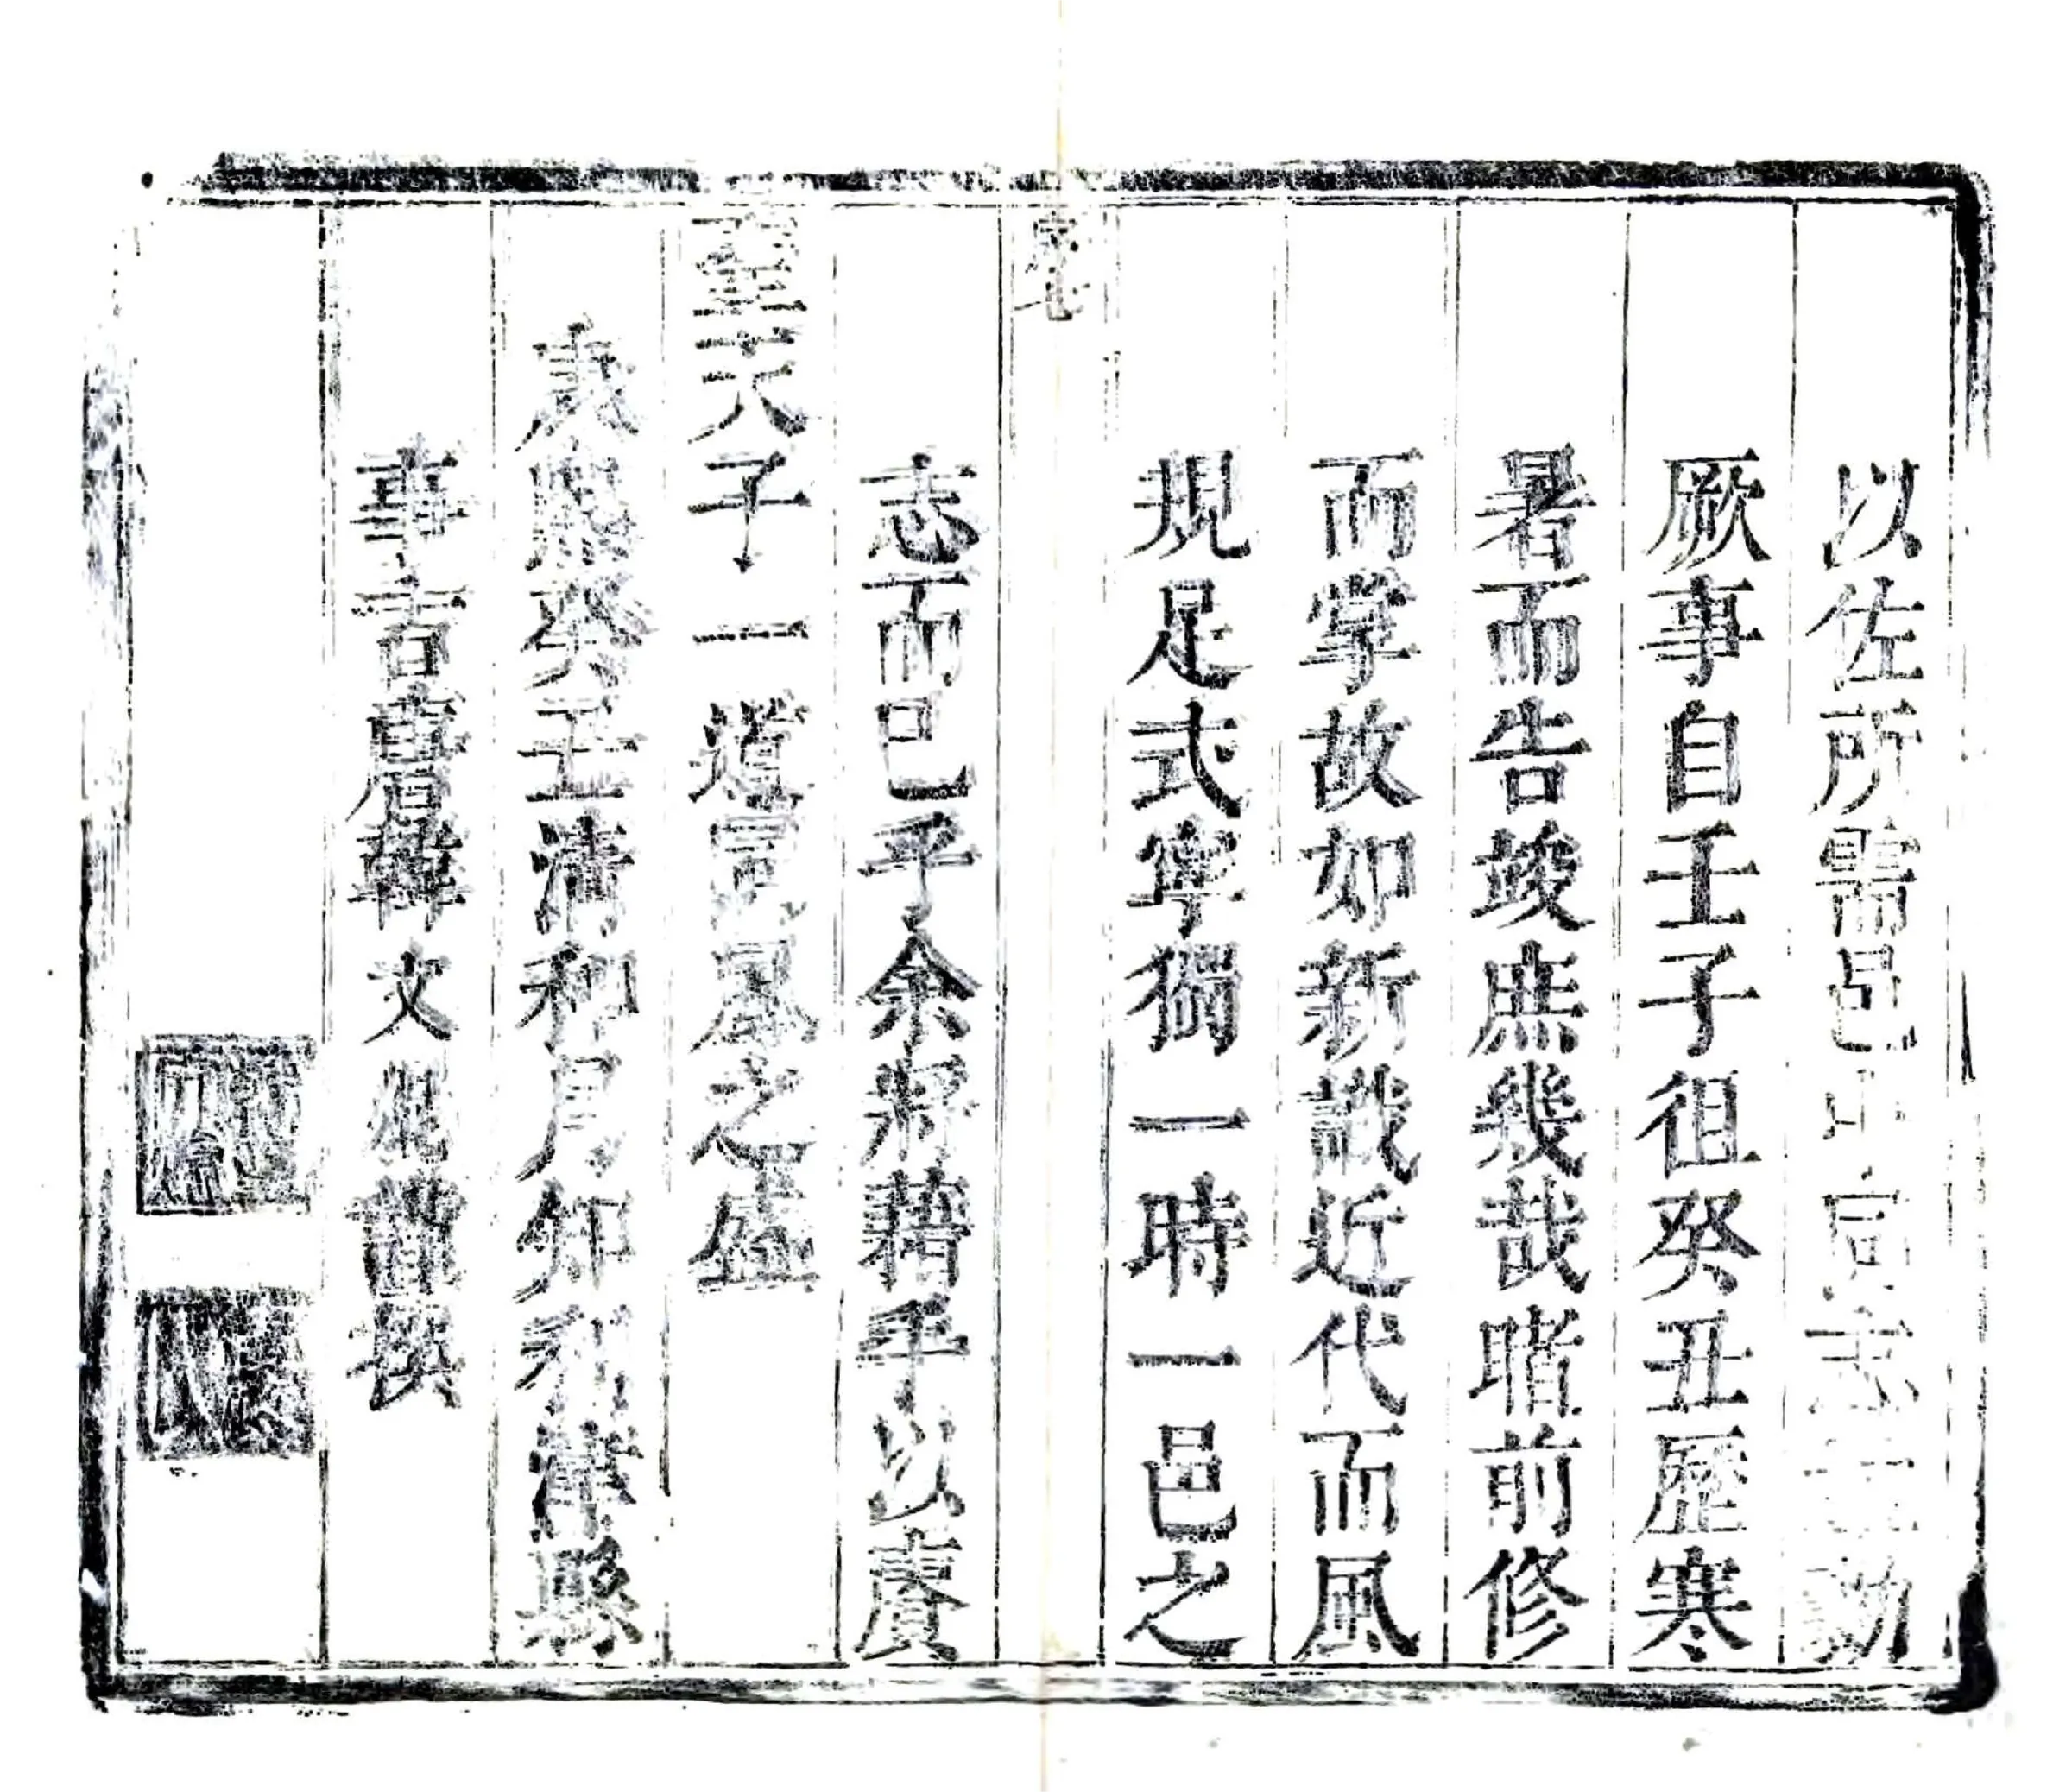 以佐所需邑
厥事自壬子徂癸丑歷寒
暑而告竣庶幾哉睹前修
而掌故如新識近代而風
規足式寧獨一時一邑之
志而已乎余將藉手以賡
聖天子一道同風之盛
康熙癸丑清和月知利津縣
事古唐韓文焜謹撰